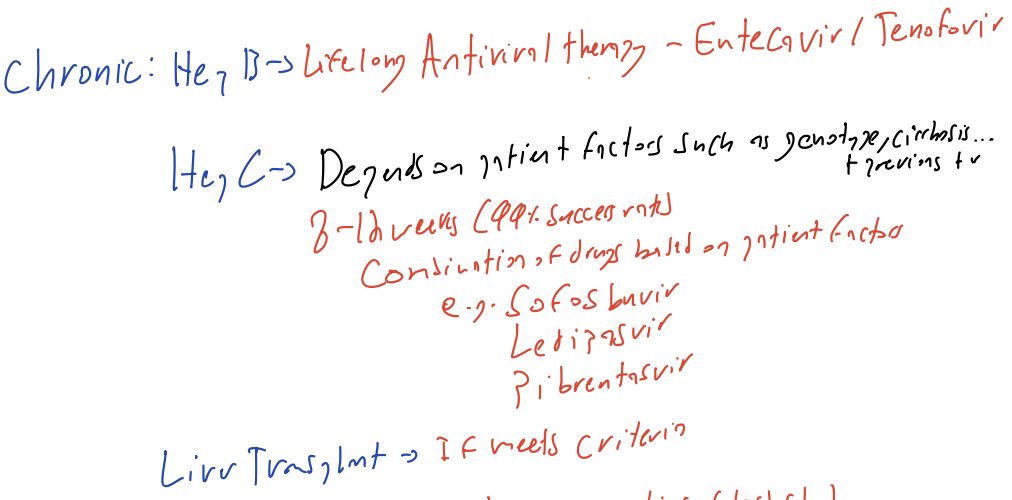 Chronic: Hep B → Lifelong Antiviral therapy - Entecavir / Tenofovir
Hep C → Depends on patient factors such as genotype, cirrhosis...
+ previous tx
8-12 weeks (99% success rate)
Combination of drugs based on patient factor
e.g. Sofosbuvir
Ledipasvir
Pibrentasvir
Liver Trasplant → If meets criteria